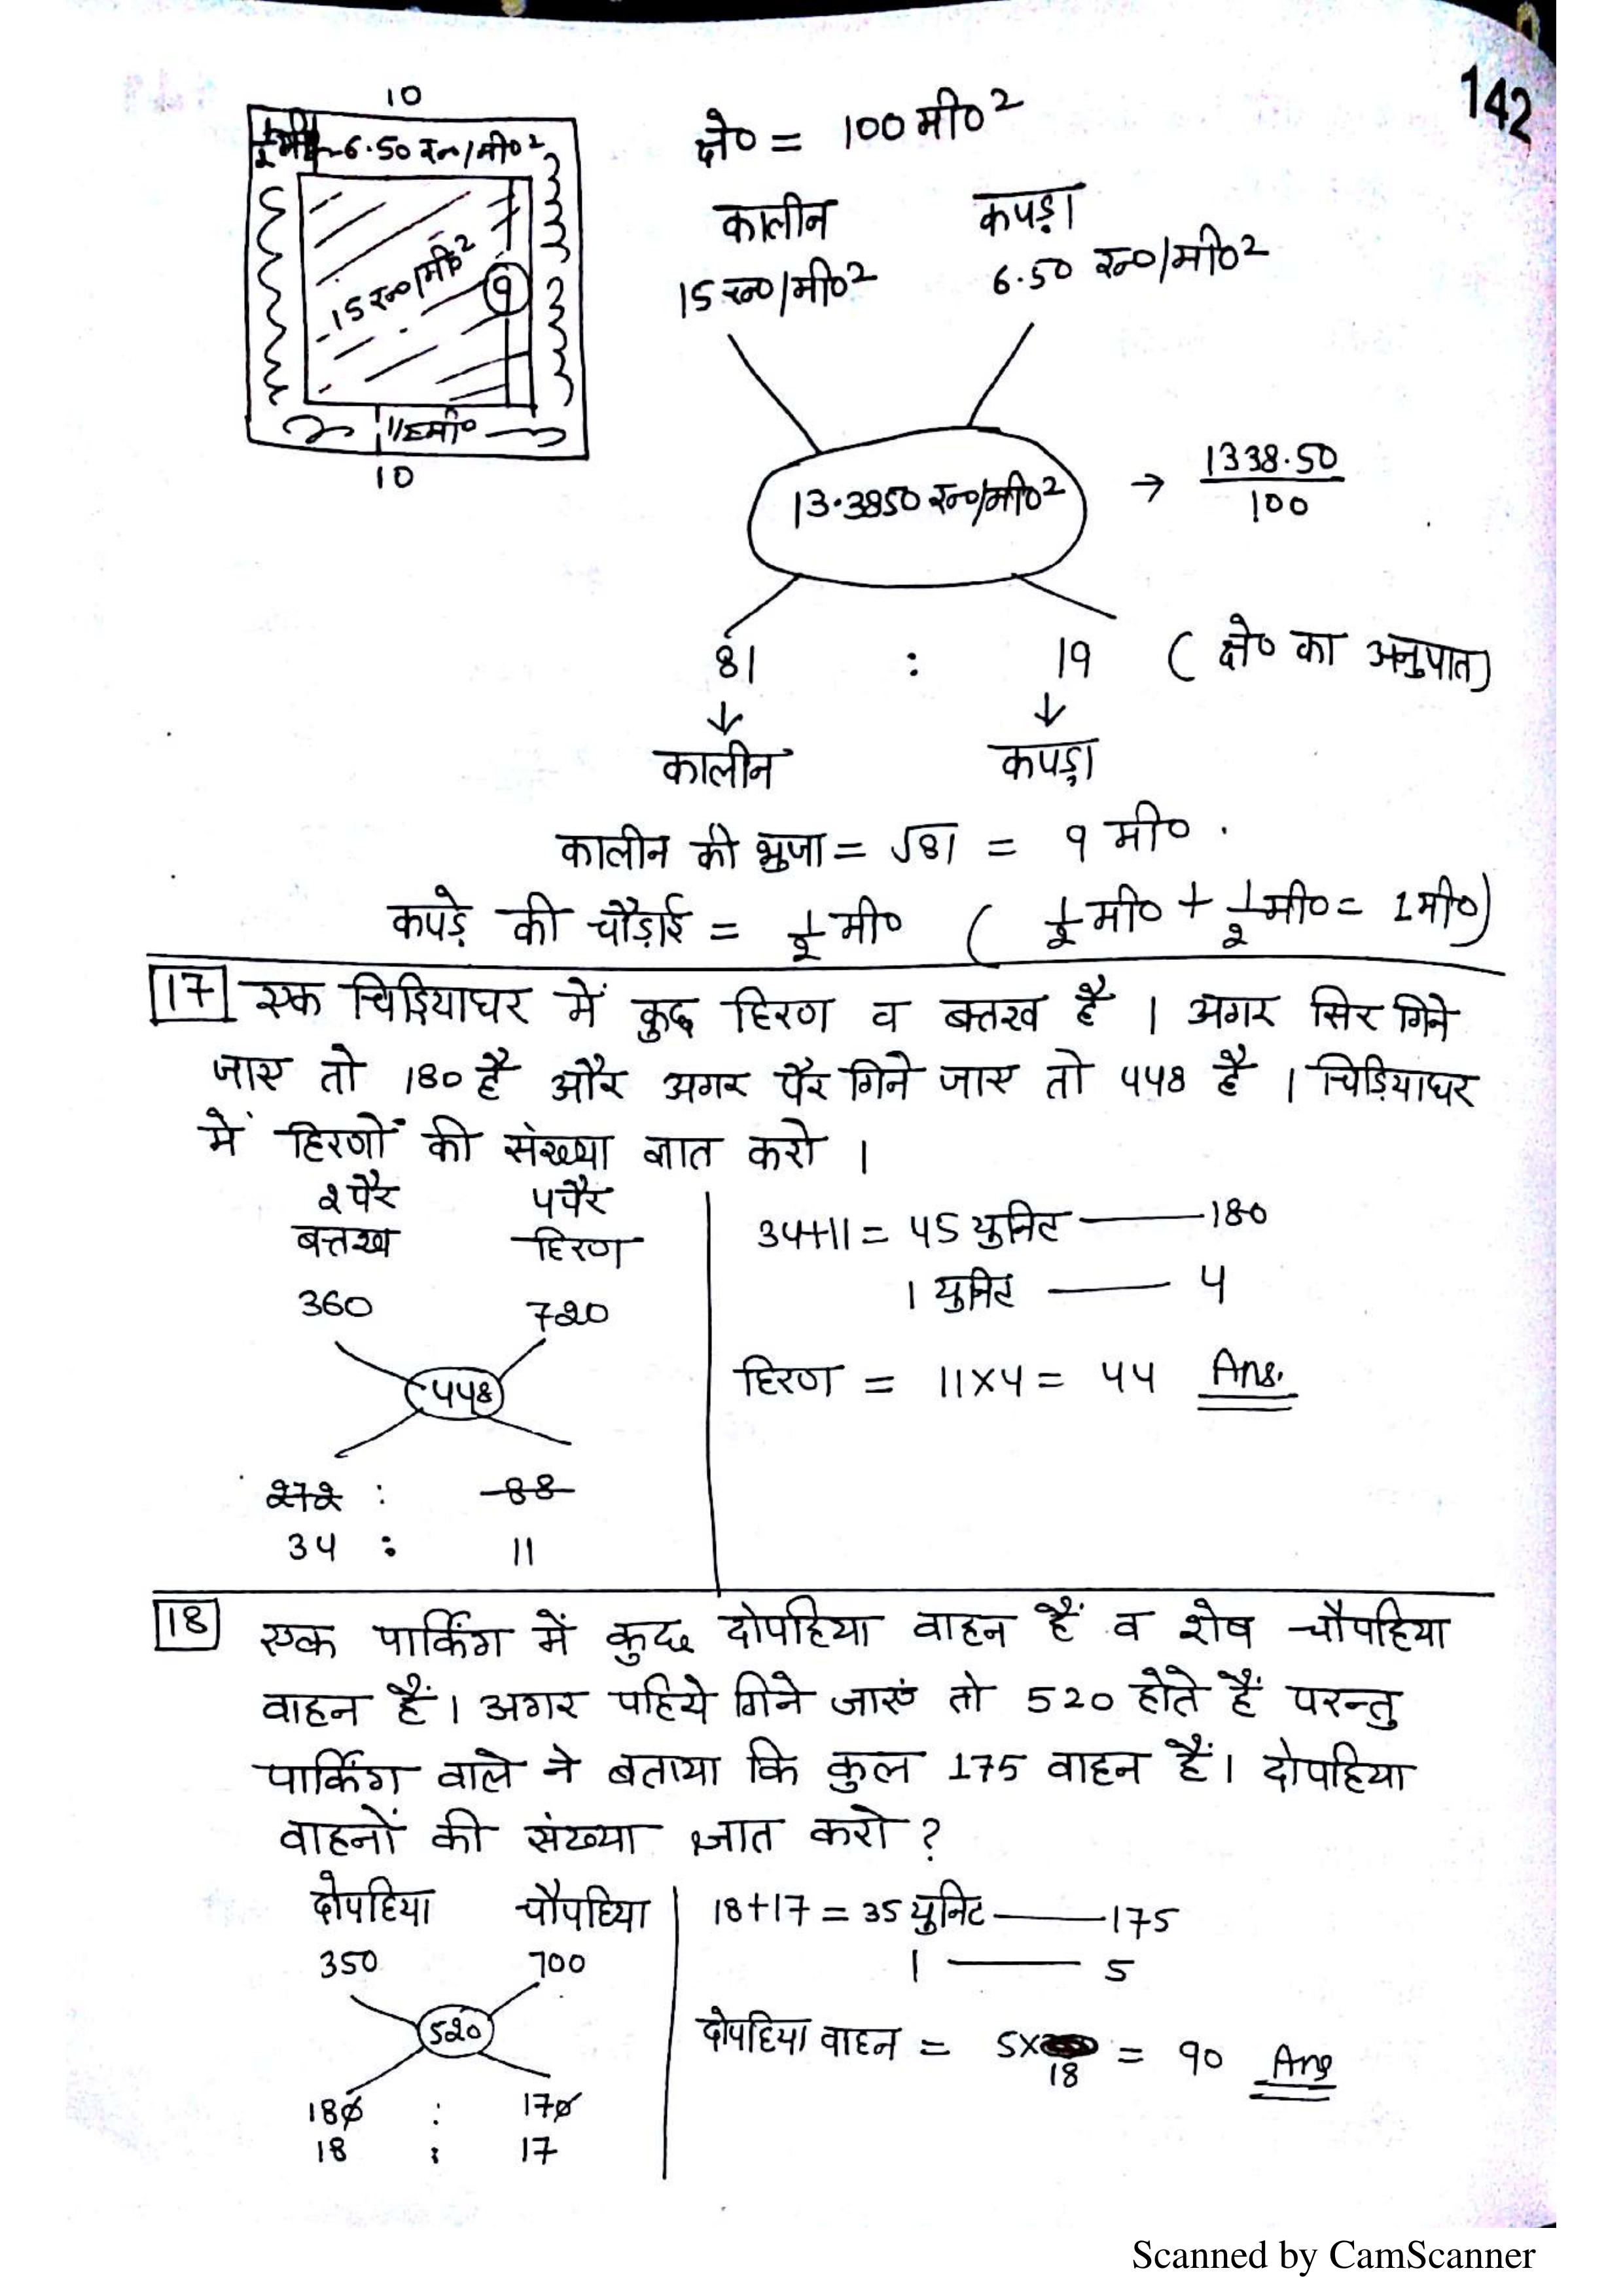 142
10
1/2 मी० 6.50 रू०/मी०²
15 रू०/मी०²
9
1/2 मी०
10
क्षे० = 100 मी०²
कालीन कपड़ा
15 रू०/मी०² 6.50 रू०/मी०²
13.3850 रू०/मी०² → 1338.50/100
81 : 19 (क्षे० का अनुपात)
↓ ↓
कालीन कपड़ा
कालीन की भुजा = √81 = 9 मी०.
कपड़े की चौड़ाई = 1/2 मी० (1/2 मी० + 1/2 मी० = 1मी०)
17 एक चिड़ियाघर में कुछ हिरण व बत्तख है। अगर सिर गिने
जाए तो 180 है और अगर पैर गिने जाए तो 448 है। चिड़ियाघर
में हिरणों की संख्या ज्ञात करो।
2 पैर 4 पैर
बत्तख हिरण
360 720
448
272 : 88
34 : 11
34+11 = 45 युनिट —— 180
1 युनिट —— 4
हिरण = 11×4 = 44 Ans.
18 एक पार्किंग में कुछ दोपहिया वाहन हैं व शेष चौपहिया
वाहन हैं। अगर पहिये गिने जाएं तो 520 होते हैं परन्तु
पार्किंग वाले ने बताया कि कुल 175 वाहन हैं। दोपहिया
वाहनों की संख्या ज्ञात करो?
दोपहिया चौपहिया
350 700
520
180 : 170
18 : 17
18+17 = 35 युनिट —— 175
1 —— 5
दोपहिया वाहन = 5×18 = 90 Ans
Scanned by CamScanner